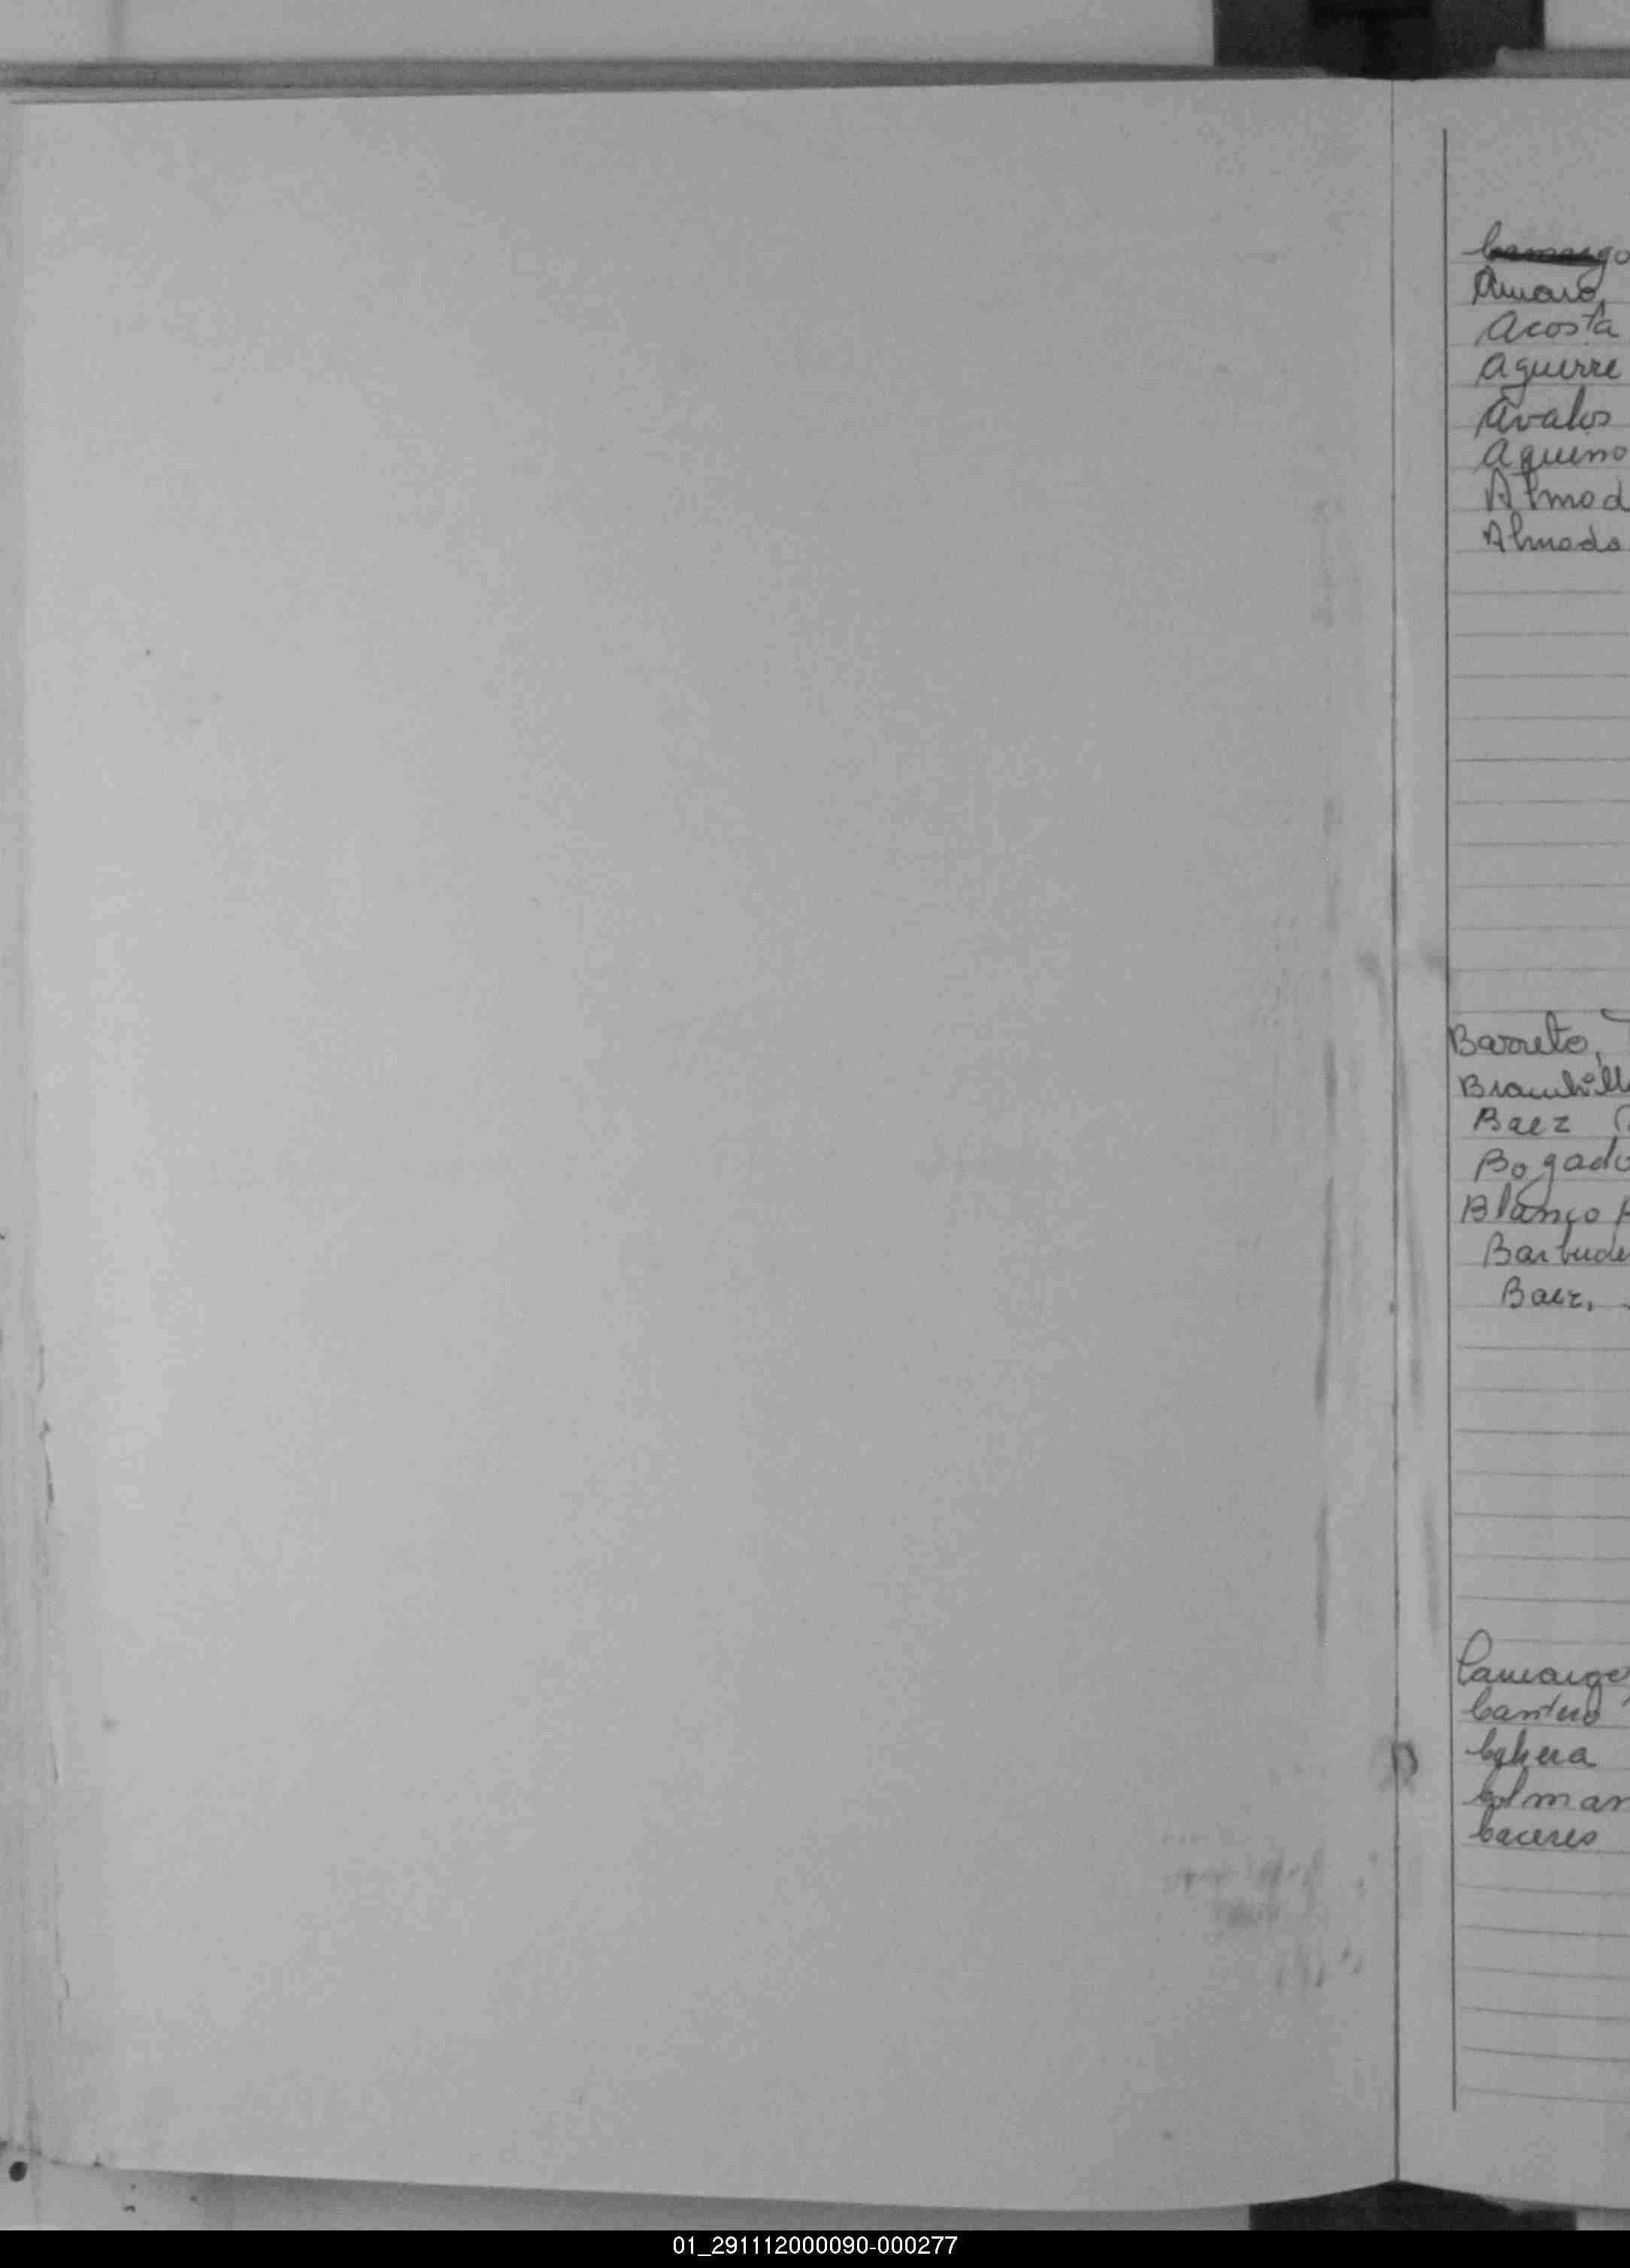 Camargo
Amaro,
Acosta
Aguirre
Avalos
Aquino
Almod
Almada
Barreto,
Brambill
Baez
Bogado
Blanco
Barbude
Baez,
Camargo
Cantero
Colman
Caceres
01_291112000090-000277